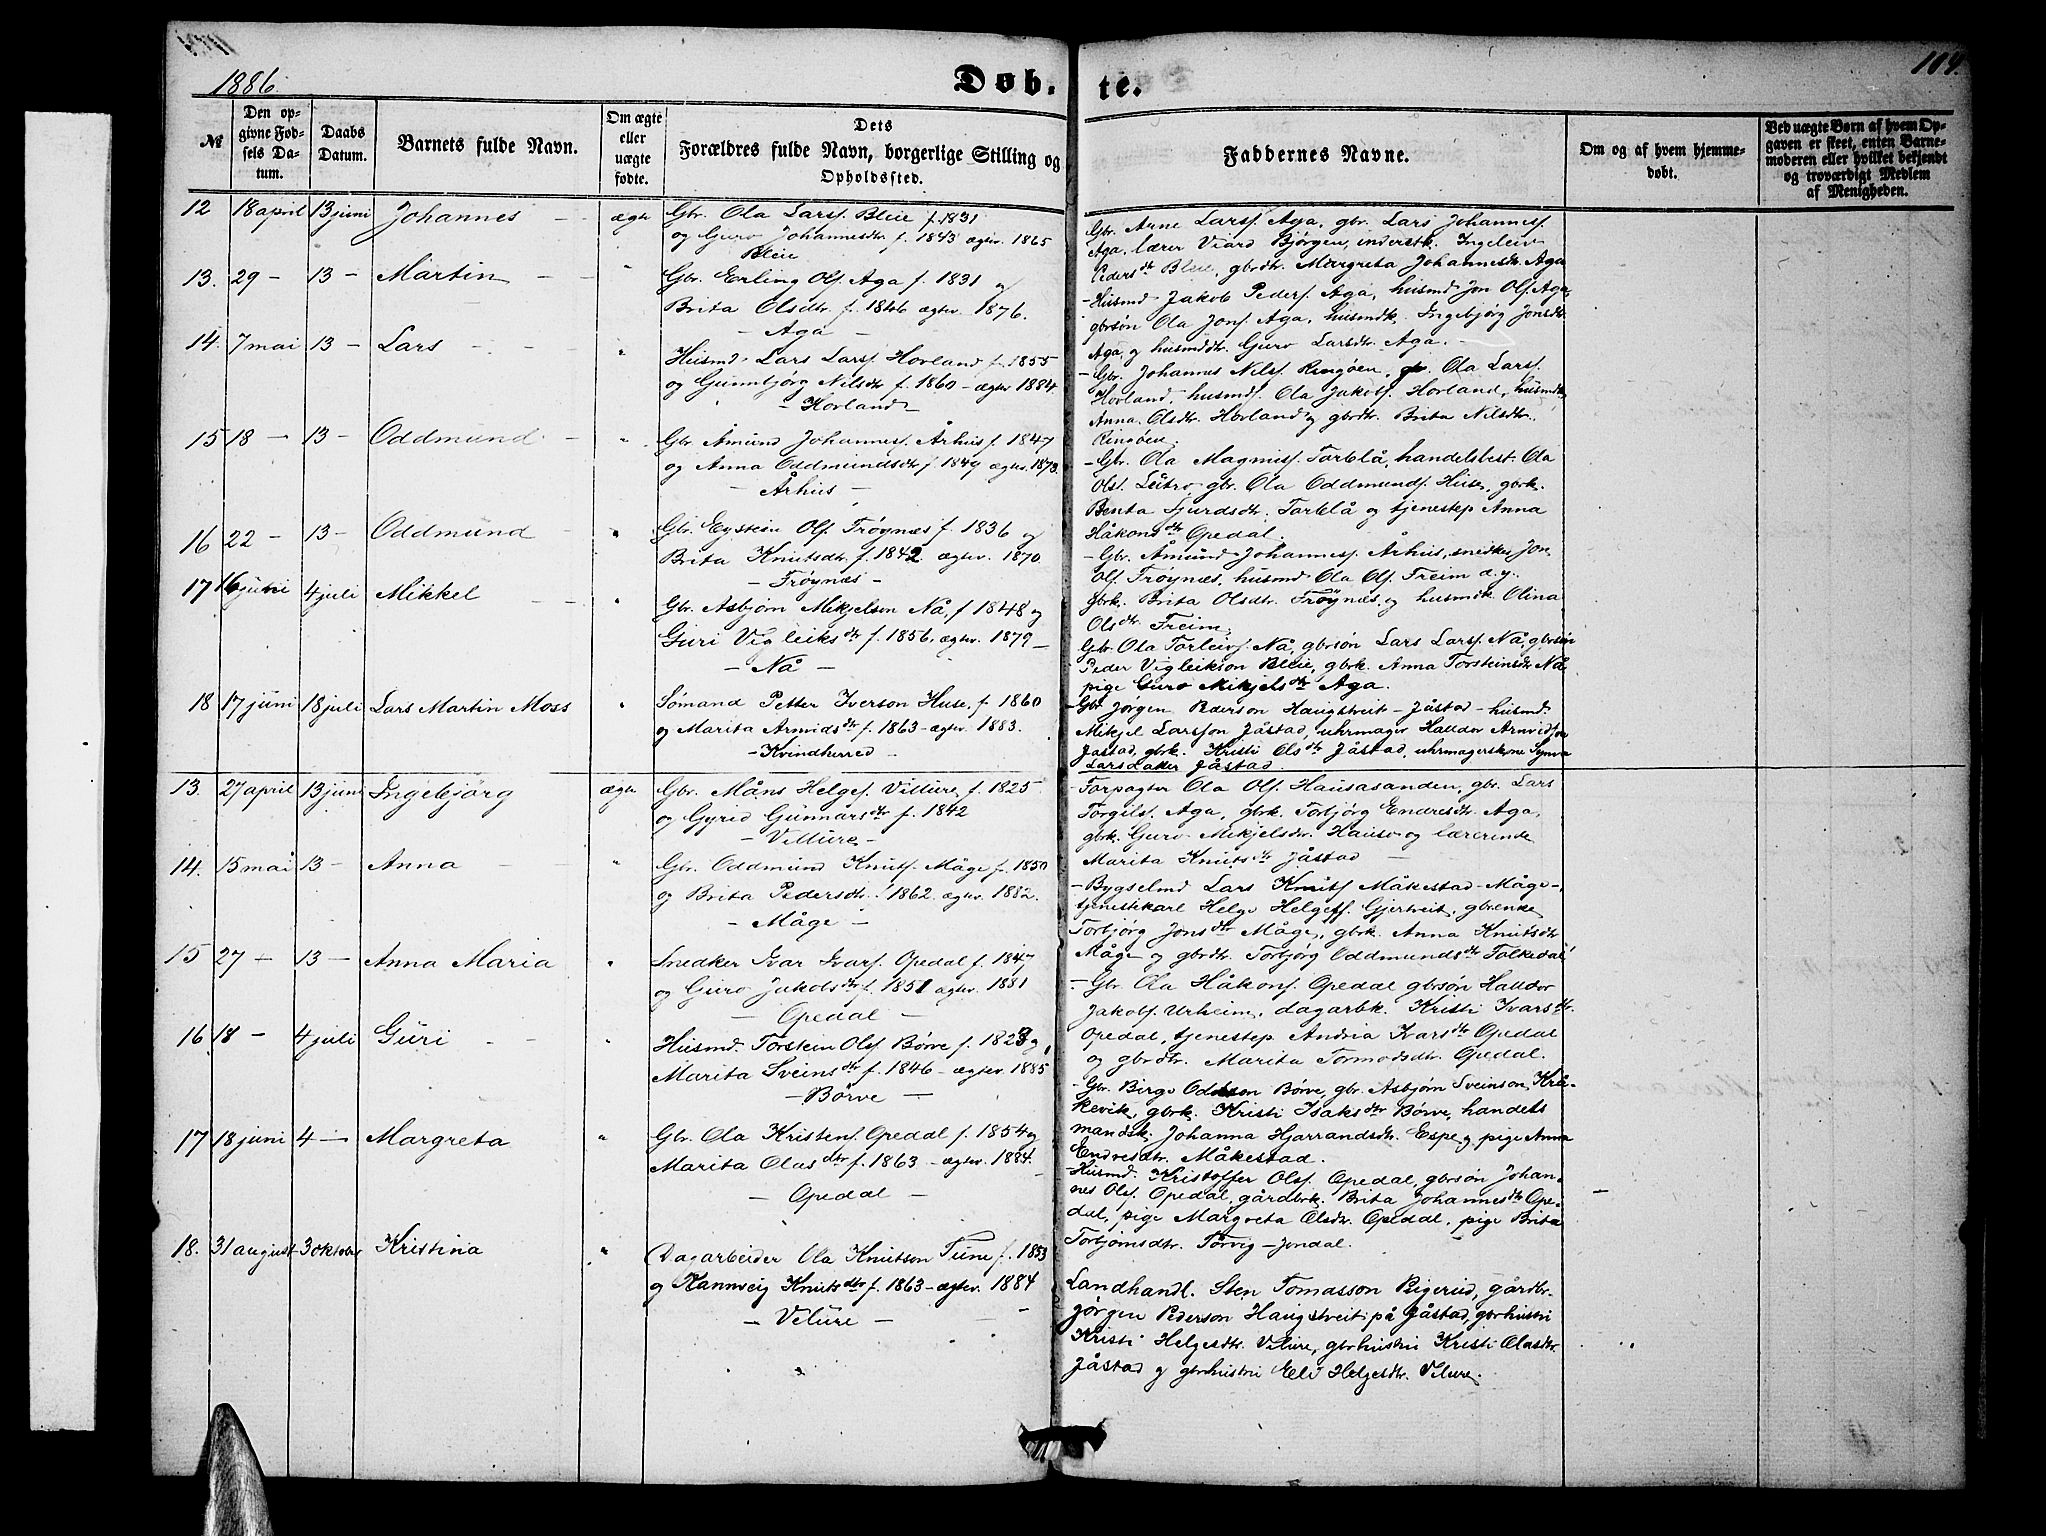 1886.
Døb-
te.
114.
№
Den op-
givne Fød-
sels Da-
tum.
Daabs
Datum.
Barnets fulde Navn.
Om ægte
eller
uægte
fødte.
Dets
Forældres fulde Navn, borgerlige Stilling og
Opholdssted.
Faddernes Navne.
Om og af hvem hjemme-
døbt.
Ved uægte Børn af hvem Op-
gaven er skeet, enten Barne-
moderen eller hvilket bekjendt
og troværdigt Medlem
af Menigheden.
12 18 april 13 juni Johannes - ægte Gbr. Ola Larsf. Bleie f. 1831
og Guro Johannesdtr. f. 1843 ægtev. 1865
Bleie
Gbr. Arne Larsf. Aga, gbr. Lars Johannesf.
Aga, lærer Viard Bjørgen, inderstk. Ingeleiv
Pedersdtr Bleie, gbrdtr. Margreta Johannesdtr. Aga
13. 29 - 13 - Martin - - " Gbr. Erling Olf. Aga f. 1831 og
Brita Olsdtr. f. 1846 ægtev. 1876.
- Aga -
- Husmd. Jakob Pedersf. Aga, husmd Jon Olf. Aga,
gbrsøn Ola Jonsf. Aga, husmdk. Ingebjørg Jonsdtr.
Aga, og husmddtr. Guro Larsdtr. Aga. -
14. 7 mai 13 - Lars - - " Husmd. Lars Larsf. Hovland f. 1855
og Gunnbjørg Nilsdtr f. 1860 - ægtev. 1884.
- Hovland -
- Gbr. Johannes Nilsf. Ringøen, gbr. Ola Larsf.
Hovland, husmdf. Ola Jakobf. Hovland, husmdk
Anna Olsdtr. Hovland og gbrdtr. Brita Nilsdtr.
Ringøen.
15 18 - 13 - Oddmund - " Gbr. Åmund Johannesf. Århus f. 1847
og Anna Oddmundsdtr f. 1849 ægtev. 1873.
- Århus -
- Gbr. Ola Magnusf. Torblå, handelsbest. Ola
Olsf. Lutro gbr. Ola Oddmundf. Huse, gbrk.
Benta Sjurdsdtr. Torblå og tjenestep Anna
Håkonsdtr Opedal.
16 22 - 13 - Oddmund - " Gbr. Eystein Olf. Frøynæs f. 1836 og
Brita Knutsdtr. f. 1842 ægtev. 1870
- Frøynæs -
- Gbr. Åmund Johannesf. Århus, snidker Jon
Olf. Frøynæs, husmd Ola Olf. Freim d.y.
gbrk. Brita Olsdtr. Frøynæs, og husmdk. Olina
Olsdtr Freim,
17 16 juni 4 juli Mikkel - - " Gbr. Asbjørn Mikjelson Nå, f 1848 og
Guri Vigleiksdtr f. 1856. ægtev. 1879 -
- Nå -
Gbr. Ola Torleivf. Nå, gbrsøn Lars Larsf. Nå, gbrsøn
Peder Vigleikson Bleie, gbrk. Anna Torsteinsdtr. Nå
pige Guro Mikjelsdtr Aga.
18 17 juni 18 juli Lars Martin Moss " Sømand Petter Iverson Huse, f 1860
og Marita Arnvidsdtr f. 1863 - ægtev. 1883.
- Kvindherred -
- Gbr Jørgen Pederson Haugstveit - Jåstad - husmd.
Mikjel Larsson Jåstad, uhrmager Halldor Arnvidson
Jåstad, gbrk. Kristi Olsdtr Jåstad, uhrmagerskone Synva
Larsdatter Jåstad.
13. 27 april 13 juni Ingebjørg ægte Gbr. Måns Helgef. Vilture, f. 1825
og Gyrid Gunnarsdtr f. 1842
- Vilture -
Forpagter Ola Olf. Hausasanden, gbr. Lars
Torgilsf. Aga, gbrk. Torbjørg Endresdtr. Aga,
gbrk. Guro Mikjelsdtr. Hauso og lærerinde
Marita Knutsdtr Jåstad -
14. 15 mai 13 - Anna - - " Gbr. Oddmund Knutf. Måge f. 1850
og Brita Pedersdtr. 1862. ægtev. 1882.
- Måge -
- Bygselmd Lars Knutf Måkestad - Måge -
tjenestekarl Helge Helgeff. Gjertveit, gbrenke
Torbjørg Jonsdtr Måge, gbrk. Anna Knutsdtr
Måge og gbrdtr. Torbjørg Oddmundsdtr Folkedal
15 27 - 13 - Anna Maria " Snedker Ivar Ivarf. Opedal f. 1847
og Guro Jakobsdtr f. 1851 ægtev. 1881
- Opedal -
- Gbr. Ola Håkonf. Opedal gbrsøn Halldor
Jakobf. Urheim, dagarbk. Kristi Ivarsdtr.
Opedal, tjenestep Andria Ivarsdtr Opedal
og gbrdtr. Marita Tormodsdtr. Opedal.
16 18 - 4 juli Guri - - " Husmd. Torstein Olsf Børve f. 1823 og,
Marita Sveinsdtr f. 1846 - ægtev. 1885
- Børve -
- Gbr. Birge Oddson Børve, gbr. Asbjørn Sveinson Krå-
kevik, gbrk. Kristi Isaksdtr Børve, handels
mandsk. Johanna Hjarrandsdtr. Espe og pige Anna
Endresdtr. Måkestad.
17 18 juni 4 - Margreta " Gbr. Ola Kristenf. Opedal f. 1854 og
Marita Olasdtr f. 1863 - ægtev. 1884.
- Opedal -
- Husmd. Kristoffer Olsf. Opedal, gbrsøn Johan-
nes Olsf. Opedal, gårdbrk. Brita Johannesdtr Ope-
dal, pige Margreta Olsdtr. Opedal, pige Brita
Torbjørnsdtr. Torvig - Jondal.
18. 31 august 3 oktober Kristina " Dagarbeider Ola Knutson Tune f. 1853
og Rannveig Knutsdtr f. 1863 - ægtev. 1884
- Velure -
Landhandl. Sten Tomasson Bigerud, gårdbr.
Jørgen Pederson Haugstveit på Jåstad, gbrhustri
Kristi Helgesdtr. Velure, gbrhustru Kristi Olasdtr.
Jåstad og gbrhustru Eli Helgesdtr. Velure.